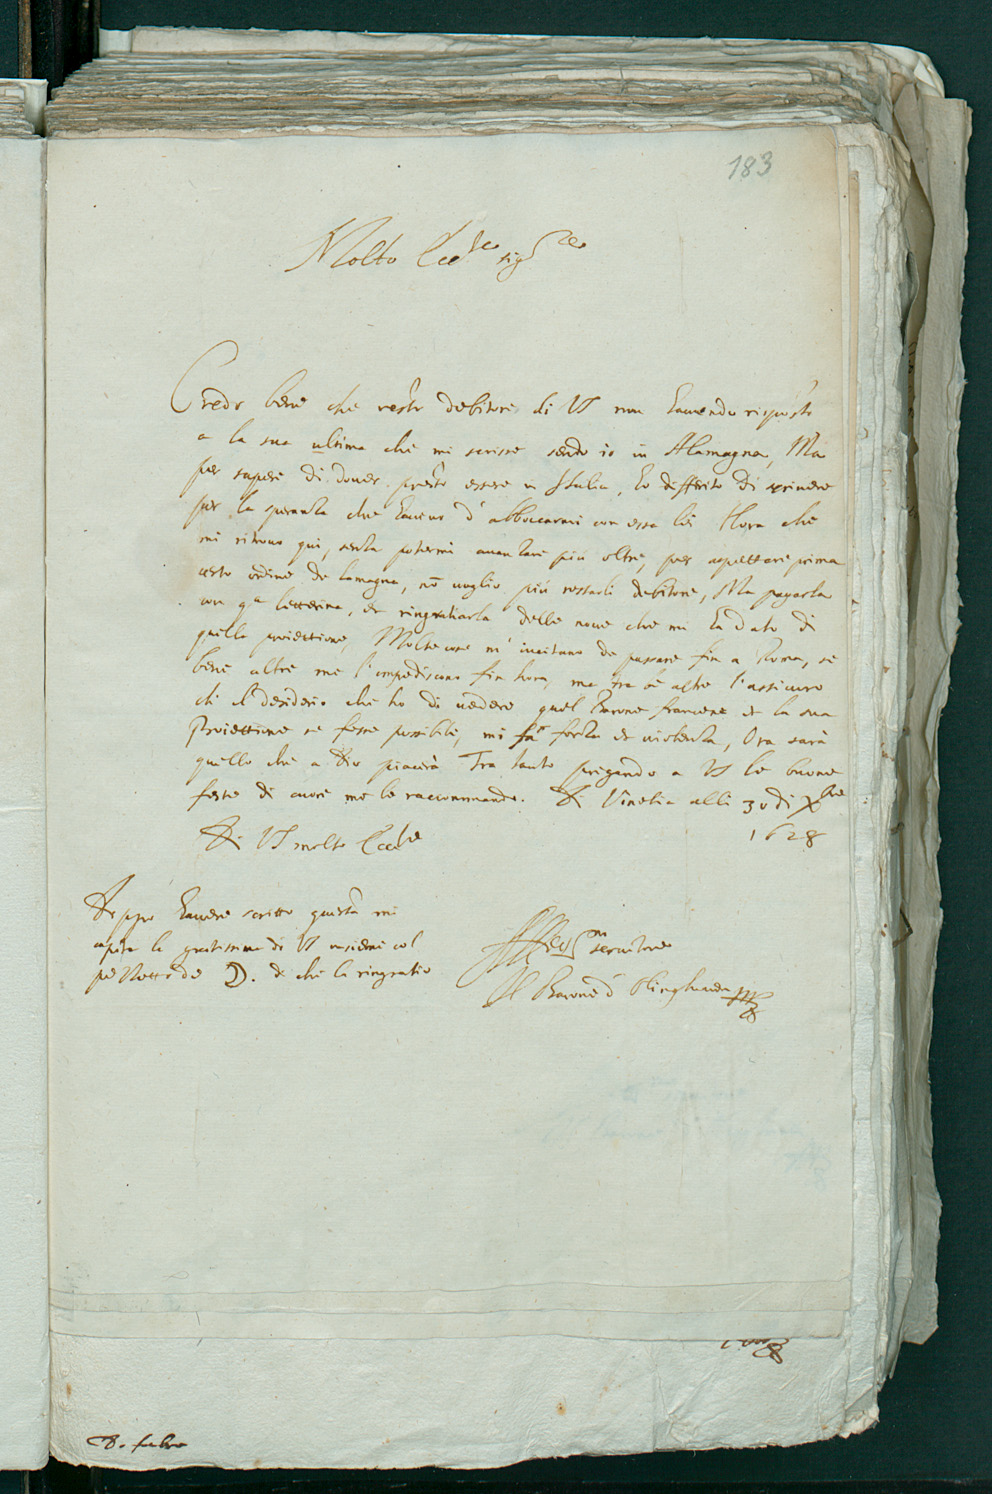 183
Molto Ecc.te sig.re
Credo bene che resto debitore di VS non havendo risposto
a la sua ultima che mi scrisse sendo io in Alamagna, Ma
per sapere di dover presto essere in Italia, ho differito di scrivere
per la speranza che havevo d'abboccarmi con essa lei Hora che
mi ritrovo qui, senza potermi avanzare più oltre, per aspettare prima
certo ordine de lamagna, nõ voglio più restarli debitore, Ma pagarla
con q.a letterina, et ringratiarla delle nove che mi ha dato di
quella proiettione, Molte cose m'invitano de passare fin a Roma, se
bene altre me l'impediscono fin hora, ma fra le altre l'assicuro
ch il desiderio che ho di vedere quel Barone francese et la sua
Proiettione se fosse possibile, mi fa forza et violenza, Ora sarà
quello che a Dio piacerà Tra tanto pregando a VS le buone
feste di cuore me le raccommando. Di Vinetia alli 30 di Xbre
1628
Di VS molto Ecc.te
Doppo havere scritto questa mi
capita la gratissima di VS insieme col
de che li ringratio
Aff.mo servitore
Il Barone d'